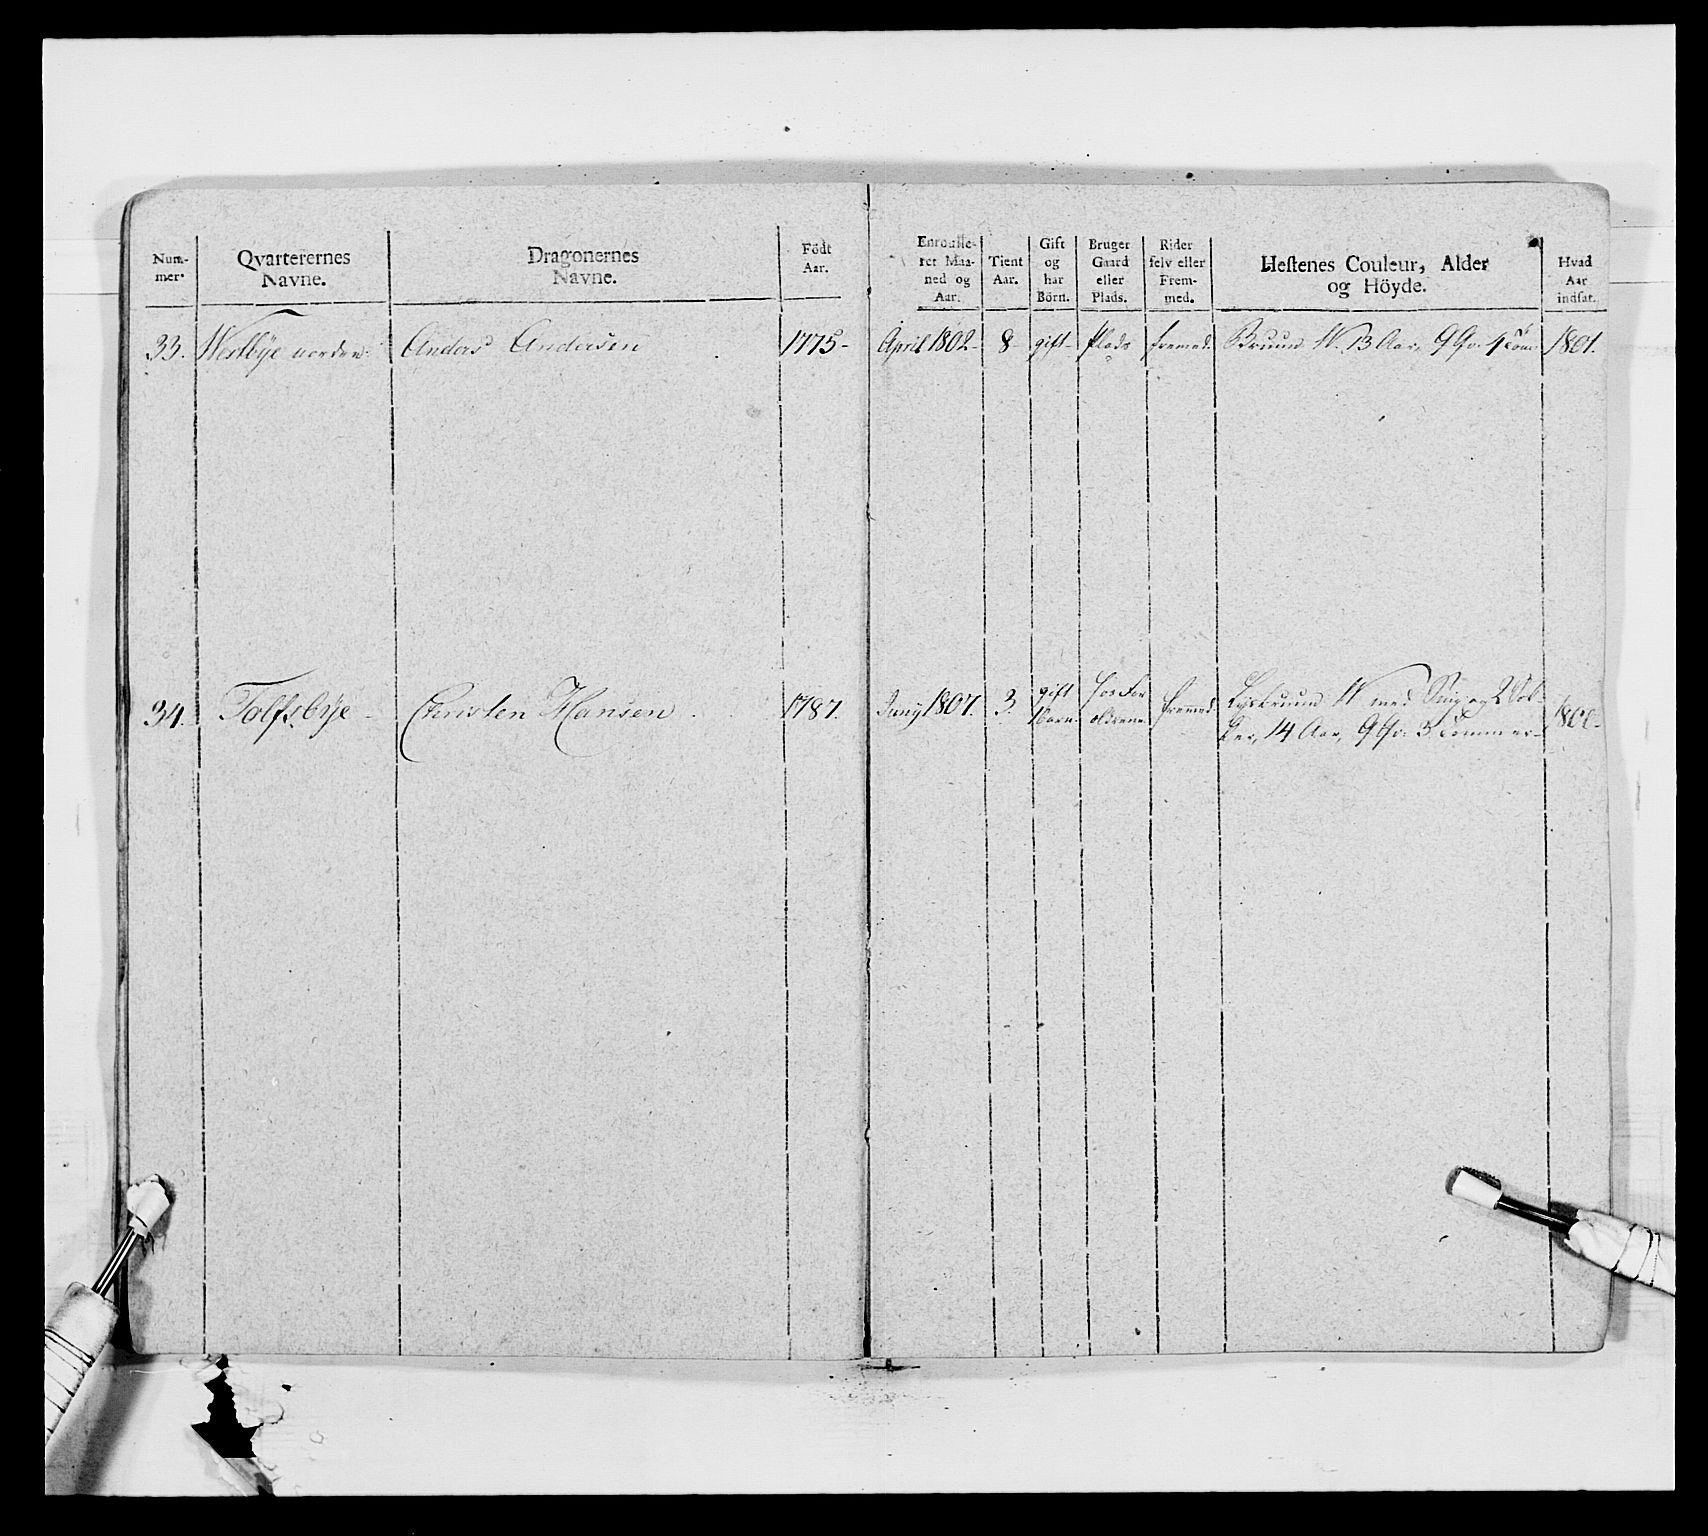 Num-
mer.
Qvarterernes
Navne.
Dragonernes
Navne.
Födt
Aar.
Enroulle-
ret Maa-
ned og
Aar.
Tient
Aar.
Gift
og
har
Börn.
Bruger
Gaard
eller
Plads.
Rider
selv eller
Frem-
med.
Hestenes Couleur, Alder
og Höyde.
Hvad
Aar
indsat.
33. Westbÿe norden: Anders Andersen 1775- April 1802- 8- gift- Plads fremed. Bruun W. 13 Aar, 9 Qr. 1801.
34. Tolfsbÿe- Christen Hansen. 1787. Junÿ 1807. 3. gift 1 Barn. hos For ældrene fremed. Lysbruun W med Snip og 2 Sok-
ker, 14 Aar, 9 Qr: 3 Tommer- 1800-